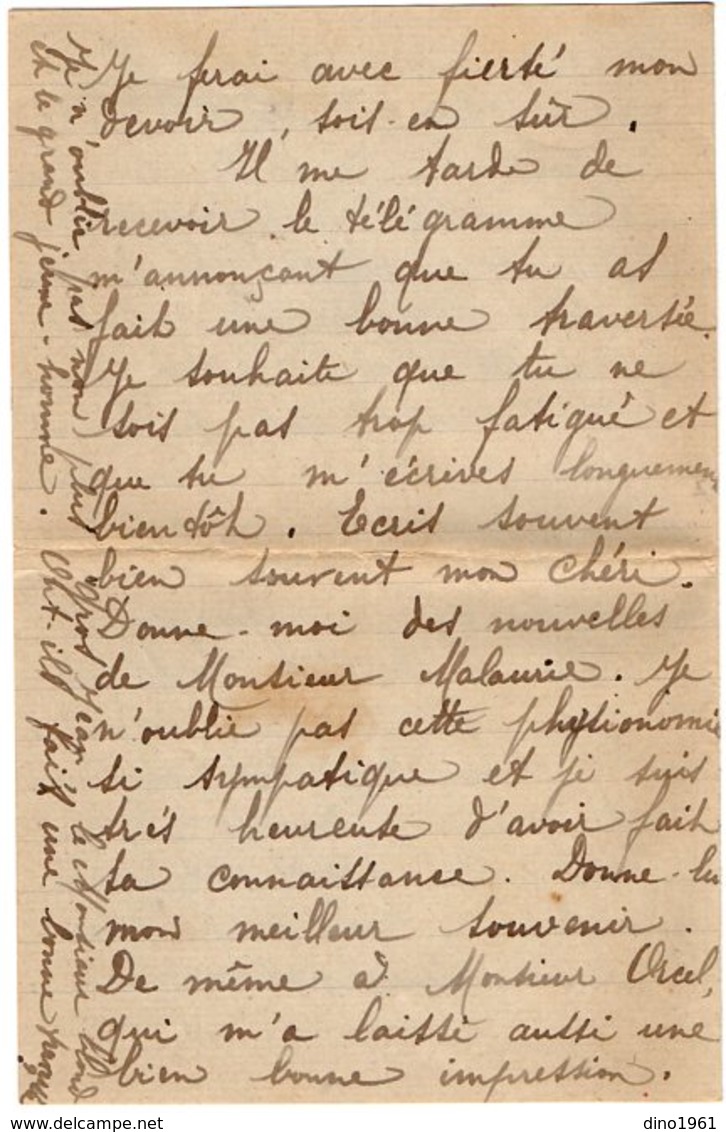 Je ferai avec fierté mon
devoir, sois-en sûr.
Il me tarde de
recevoir le télégramme
m'annonçant que tu as
fait une bonne traversée.
Je souhaite que tu ne
sois pas trop fatigué et
que tu m'écrives longuement
bientôt. Ecris souvent
bien souvent mon chéri.
Donne-moi des nouvelles
de Monsieur Malaurie. Je
n'oublie pas cette physionomie
si sympatique et je suis
très heureuse d'avoir fait
sa connaissance. Donne-lui
mon meilleur souvenir.
De même à Monsieur Orcel,
qui m'a laissé aussi une
bien bonne impression.
Je n'oublie pas non plus gros Jean le Monsieur blond
et le grand jeune-homme. Ont-ils fait une bonne
dino1961